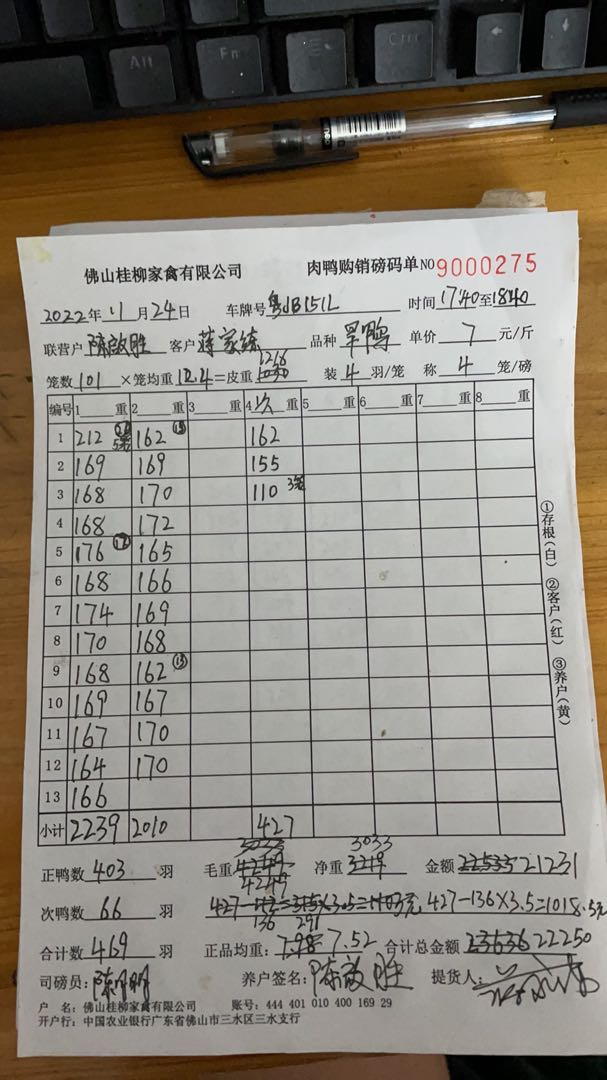 Alt Fn Ctrl
佛山桂柳家禽有限公司 肉鸭购销磅码单 NO 9000275
2022年11月24日 车牌号 粤JB151L 时间 17:40至18:40
联营户 陈啟胜 客户 蒋家练 品种 旱鸭 单价 7 元/斤
1218
笼数 101 ×笼均重 12.4=皮重 装 4 羽/笼 称 4 笼/磅
编号 1 重 2 重 3 重 4 次 重 5 重 6 重 7 重 8 重
1 212 5笼 162 162
2 169 169 155
3 168 170 110 3笼
4 168 172
5 176 165
6 168 166
7 174 169
8 170 168
9 168 162 ⑮
10 169 167
11 167 170
12 164 170
13 166
小计 2239 2010 427
①存根(白) ②客户(红) ③养户(黄)
3033
正鸭数 403 羽 毛重 4249 净重 3219 金额 22535 21231
次鸭数 66 羽 427-136×3.5=1018.5元
136 291
合计数 469 羽 正品均重: 7.98 7.52 合计总金额 23636 22250
司磅员: 陈明明 养户签名: 陈啟胜 提货人:
户 名: 佛山桂柳家禽有限公司 账号: 444 401 010 400 169 29
开户行: 中国农业银行广东省佛山市三水区三水支行